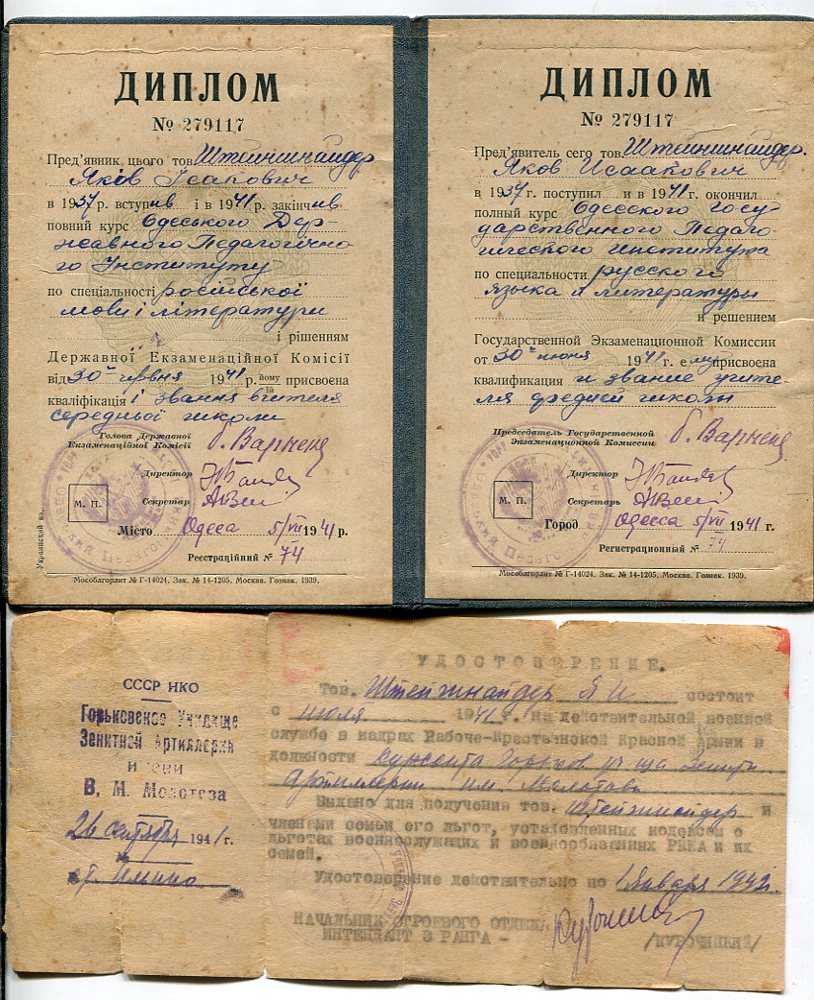 ДИПЛОМ
№ 279117
Пред'явник цього тов. Штейншнайдер
Яков Ісакович
в 1937 р. вступив і в 1941 р. закінчив
повний курс Одеського Дер
жавного Педагогічно
го Інституту
по спеціальності російської
мови і літератури
і рішенням
Державної Екзаменаційної Комісії
від 30 червня 1941 р. йому їй присвоєна
кваліфікація і звання вчителя
середньої школи
Голова Державної
Екзаменаційної Комісії
Директор
Секретар
М. П.
Місто Одесса 5/VII 1941 р.
Реєстраційний № 74
Мособлгорлит № Г-14024. Зак. № 14-1205. Москва. Гознак. 1939.
ДИПЛОМ
№ 279117
Пред'явитель сего тов. Штейншнайдер.
Яков Исаакович
в 1937 г. поступил и в 1941 г. окончил
полный курс Одесского госу-
дарственного Педаго-
гического института
по специальности русского
языка и литературы
и решением
Государственной Экзаменационной Комиссии
от 30 июня 1941 г. ему присвоена
квалификация и звание учите-
ля средней школы
Председатель Государственной
Экзаменационной Комиссии
Директор
Секретарь
М. П.
Город Одесса 5/VII 1941 г.
Регистрационный № 74
Мособлгорлит № Г-14024. Зак. № 14-1205. Москва. Гознак. 1939.
СССР НКО
Горьковское Училище
Зенитной Артиллерии
имени
В. М. Молотова
26 сентября 1941 г.
УДОСТОВЕРЕНИЕ.
Тов. Штейншнайдер Я И состоит
с июля 1941 г. на действительной военной
службе в кадрах Рабоче-Крестьянской Красной Армии в
должности курсанта Горьков уч-ща Зенит
Артиллерии им. Молотова
Выдано для получения тов. Штейншнайдер и
членами семьи его льгот, установленных кодексом о
льготах военнослужащих и военнообязанных РККА и их
семей.
Удостоверение действительно по 1 января 1942 г.
НАЧАЛЬНИК СТРОЕВОГО ОТДЕЛ
ИНТЕНДАНТ 3 РАНГА -